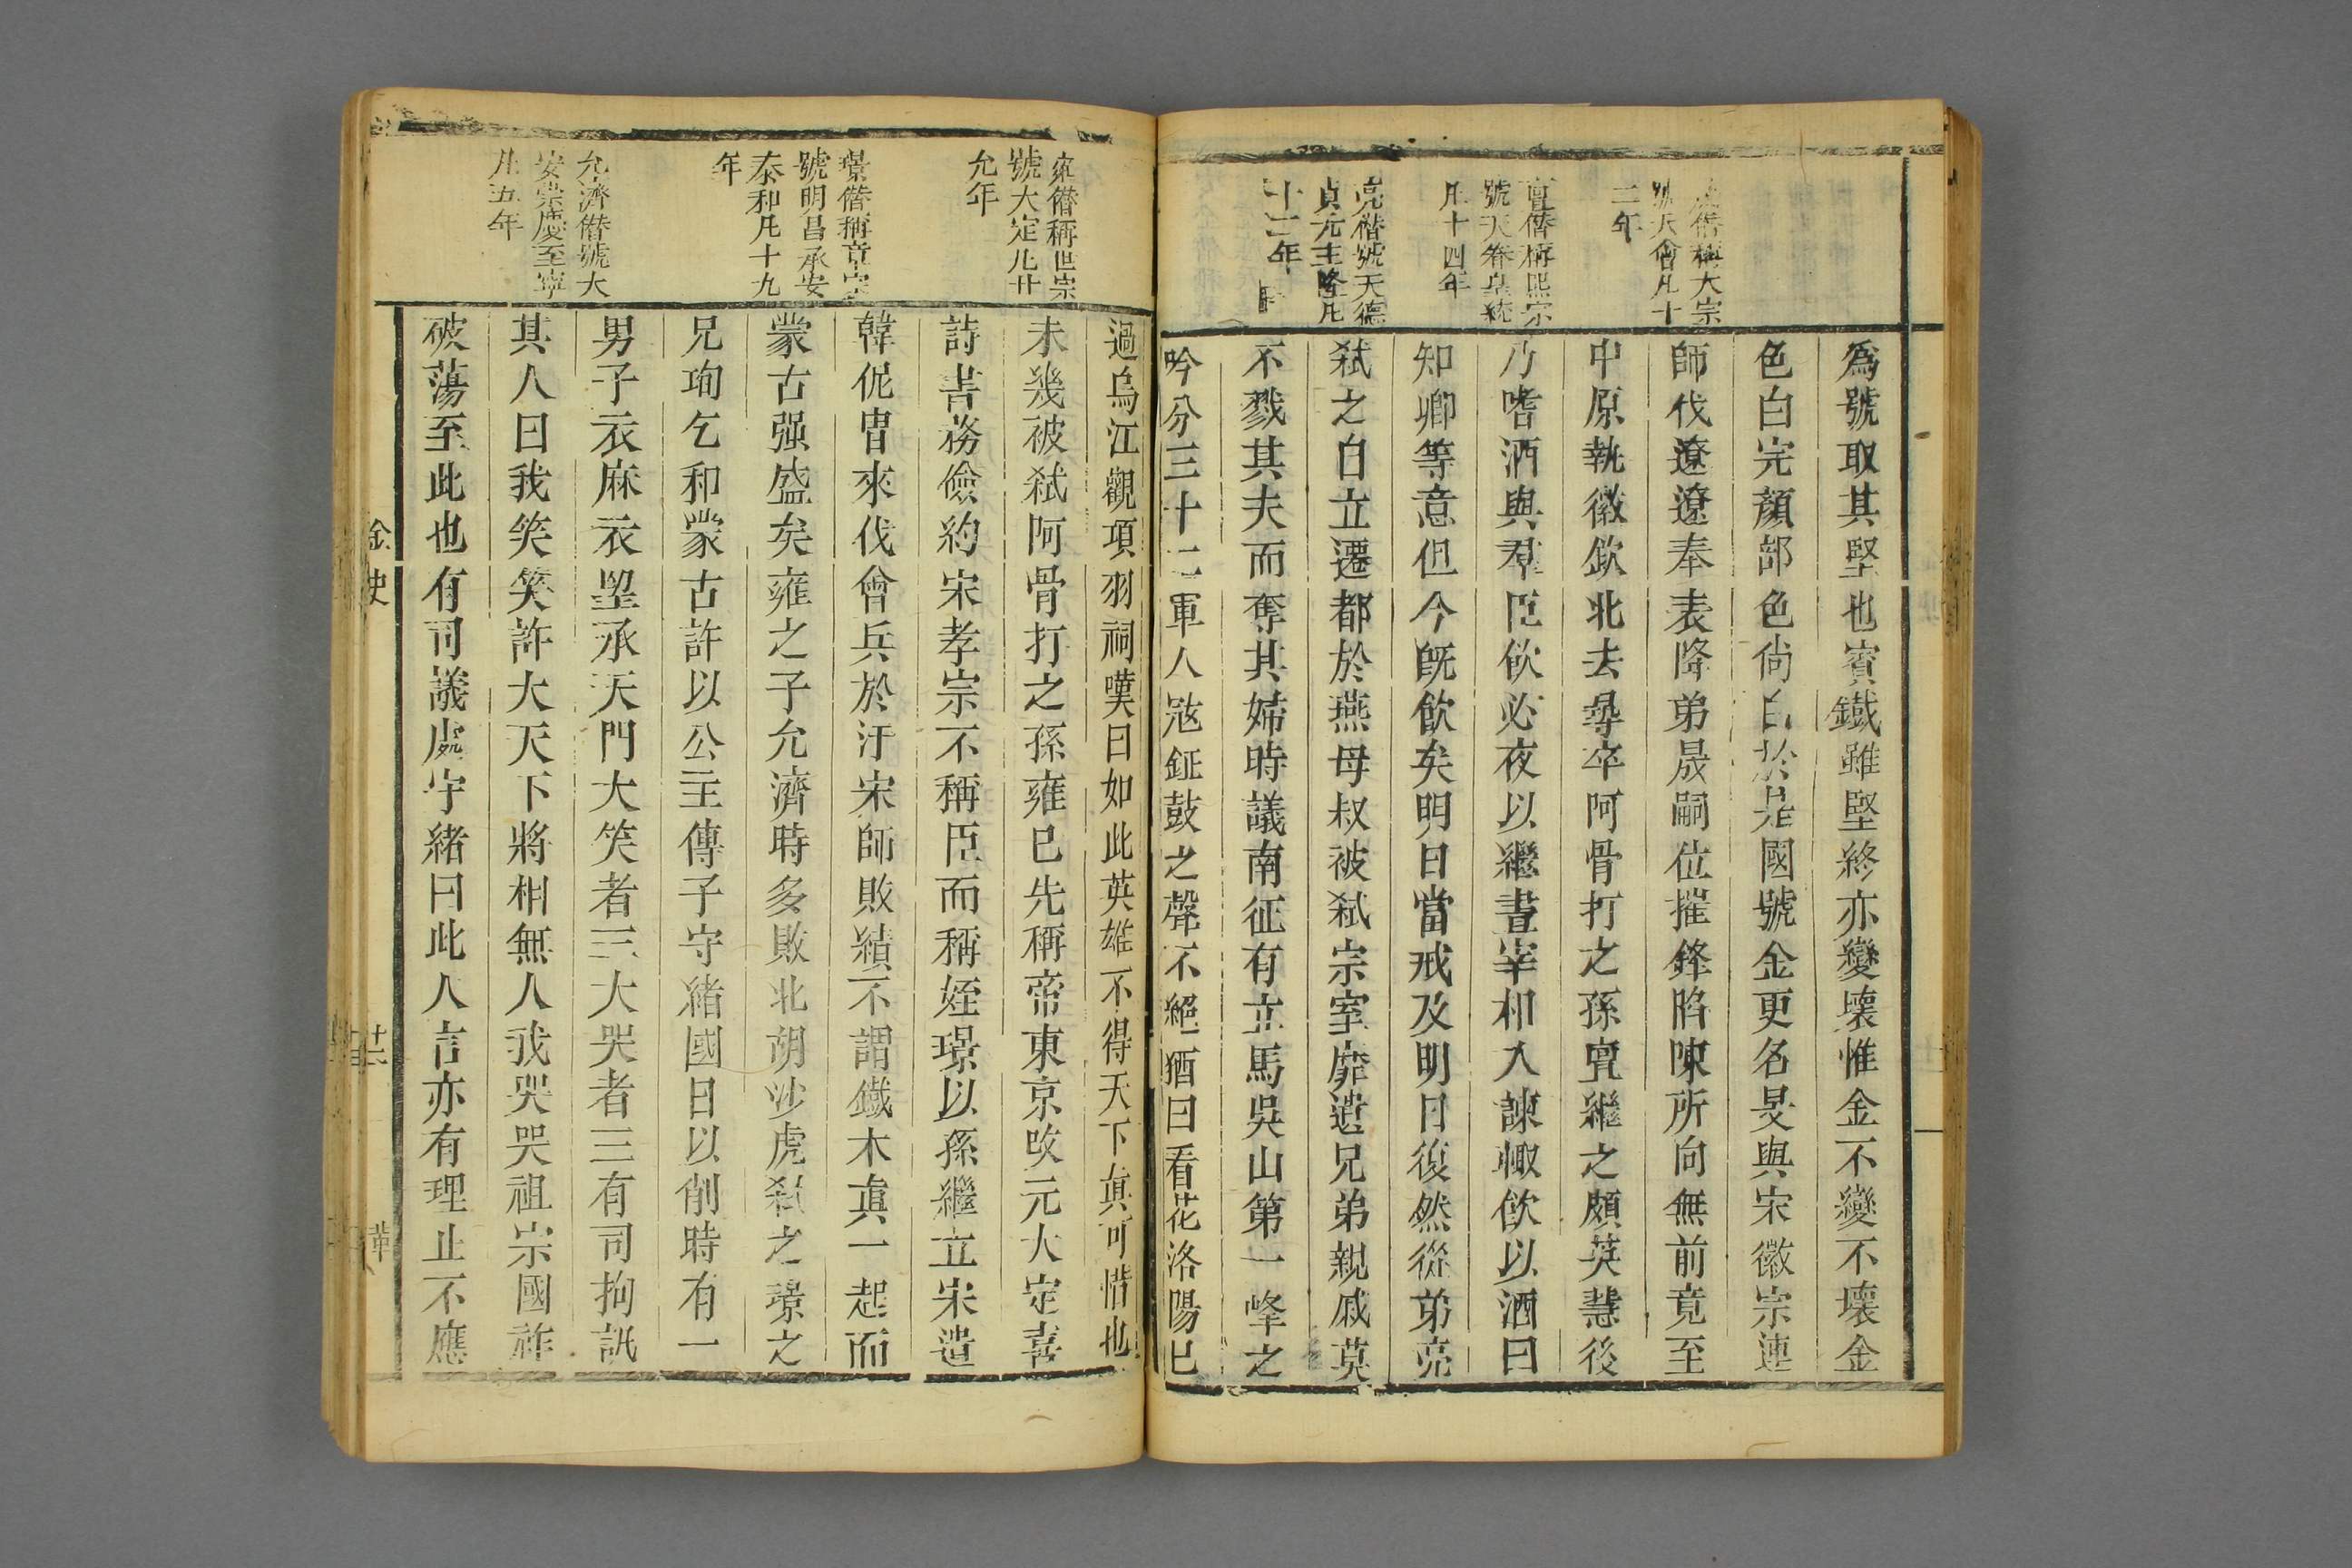 晟僭稱太宗
號天會凡十
二年
亶僭稱熙宗
號天眷皇統
凡十四年
亮僭號天德
貞元正隆凡
十二年
爲號取其堅也賓鐵雖堅終亦變壞惟金不變不壞金
色白完顏部色尙白於是國號金更名旻與宋徽宗連
師伐遼遼奉表降弟晟嗣位摧鋒陷陳所向無前竟至
中原執徽欽北去尋卒阿骨打之孫亶繼之頗英慧後
乃嗜酒與羣臣飲必夜以繼晝宰相入諫輙飲以酒曰
知卿等意但今旣飲矣明日當戒及明日復然從弟亮
弒之自立遷都於燕母叔被弒宗室靡遺兄弟親戚莫
不戮其夫而奪其婦時議南征有立馬吳山第一峰之
吟分三十二軍人冦鉦鼓之聲不絕猶曰看花洛陽巳
雍僭稱世宗
號大定凡廿
九年
璟僭稱章宗
號明昌承安
泰和凡十九
年
允濟僭號大
安崇慶至寧
凡五年
過烏江觀項羽祠嘆曰如此英雄不得天下眞可惜也
未幾被弒阿骨打之孫雍巳先稱帝東京改元大定喜
詩書務儉約宋孝宗不稱臣而稱姪璟以孫繼立宋遣
韓侂胄來伐會兵於汴宋師敗績不謂鐵木眞一起而
蒙古强盛矣雍之子允濟時多敗北胡沙虎弒之璟之
兄珣乞和蒙古許以公主傳子守緒國日以削時有一
男子衣麻衣朢承天門大笑者三大哭者三有司拘訊
其人曰我笑笑許大天下將相無人我哭哭祖宗國祚
破蕩至此也有司議處守緒曰此人言亦有理止不應
金史
十六
華